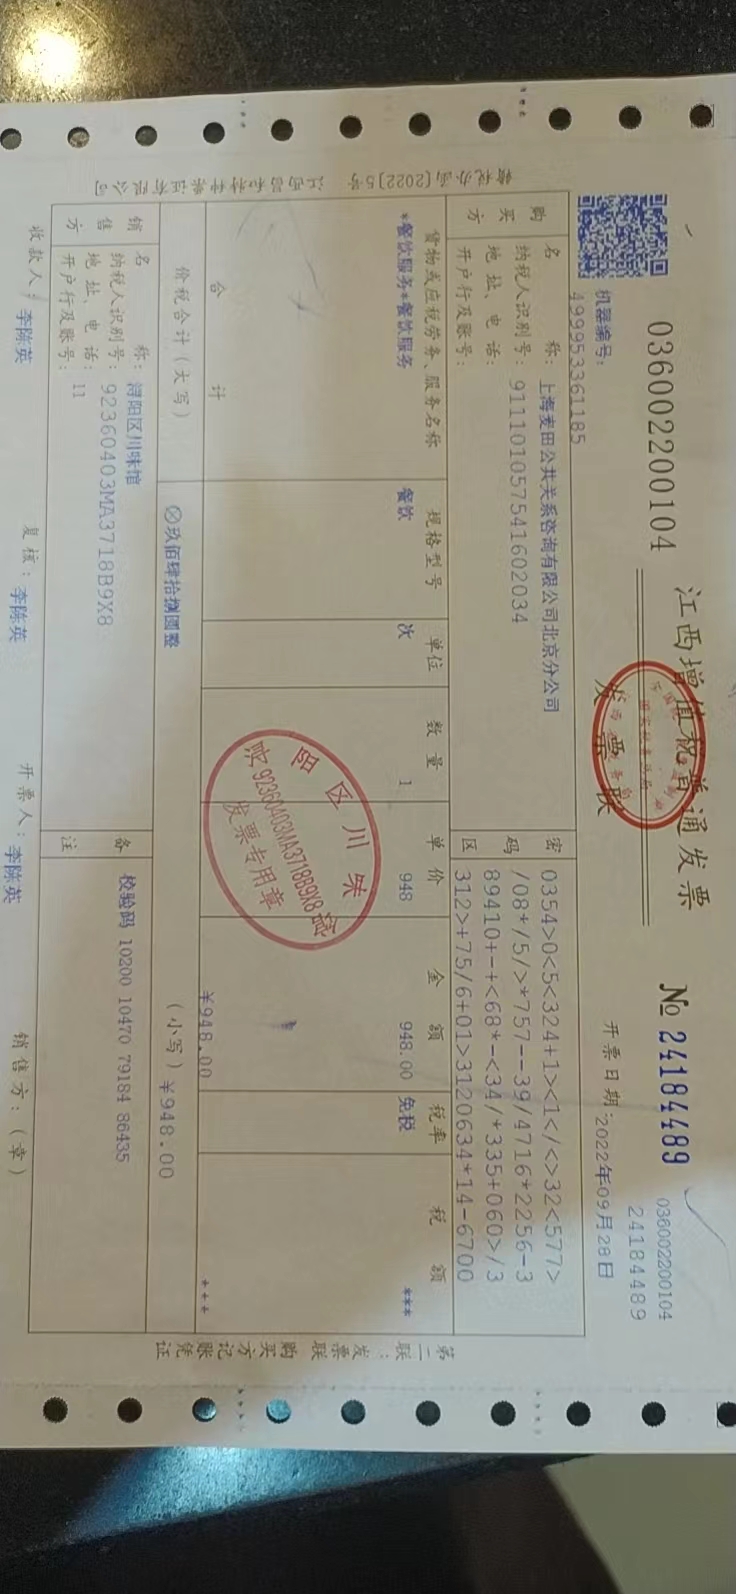 036002200104
江西增值税普通发票
发票联
№ 24184489
036002200104
24184489
机器编号：
499953361185
开票日期：2022年09月28日
购买方
名　　称：上海麦田公共关系咨询有限公司北京分公司
纳税人识别号：911101057541602034
地址、电话：
开户行及账号：
密码区
0354>0<5<324+1><1</<>32<577>
/08*/5/>*757--39/4716*2256-3
89410+-+<68*-<34/*335+060>/3
312>+75/6+01>3120634*14-6700
货物或应税劳务、服务名称　规格型号　单位　数量　单价　金额　税率　税额
*餐饮服务*餐饮服务　餐饮　次　1　948　948.00　免税　***
合　　计　¥948.00　***
价税合计（大写）　⊗玖佰肆拾捌圆整　（小写）¥948.00
销售方
名　　称：浔阳区川味馆
纳税人识别号：92360403MA3718B9X8
地址、电话：
开户行及账号：11
备注
校验码 10200 10470 79184 86435
收款人：李陈英　复核：李陈英　开票人：李陈英　销售方：（章）
阳区川味馆
92360403MA3718B9X8
发票专用章
第二联：发票联　购买方记账凭证
税办函[2022]5号